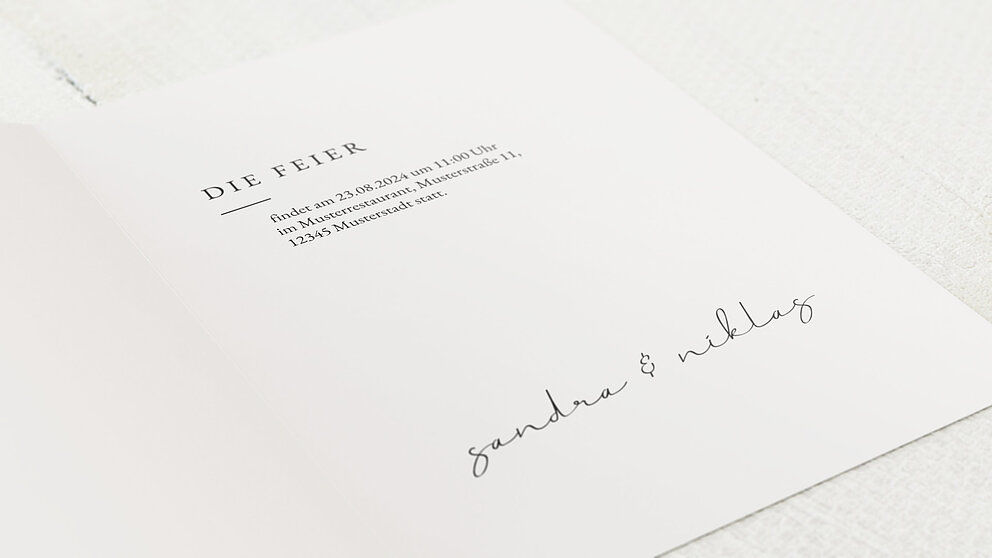 DIE FEIER
findet am 23.08.2024 um 11:00 Uhr
im Musterrestaurant, Musterstraße 11,
12345 Musterstadt statt.
sandra & niklas